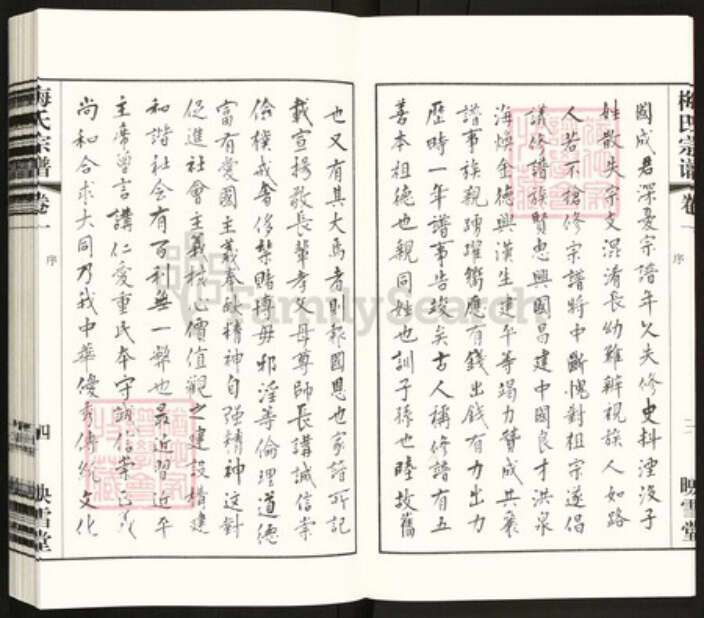 梅氏宗譜
卷一
序
映雪堂
國成君深憂宗譜年久失修史料湮没子
姓散失宗支混淆長幼難辨視族人如路
人若不搶修宗譜將中斷愧對祖宗遂倡
議修譜族賢忠興國昌建中國良才洪泉
海煥金德興漢生建平等竭力贊成共襄
譜事族親踴躍響應有錢出錢有力出力
歷時一年譜事告竣矣古人稱修譜有五
善本祖德也親同姓也訓子孫也睦故舊
也又有其大焉者則報國恩也家譜所記
載宣揚敬長輩孝父母尊師長講誠信崇
儉樸戒奢侈禁賭博毋邪淫等倫理道德
富有愛國主義奉獻精神自強精神這對
促進社會主義核心價值觀之建設構建
和諧社會有百利無一弊也最近習近平
主席曾言講仁愛重民本守誠信崇正義
尚和合求大同乃我中華優秀傳統文化
梅氏宗譜
卷一
序
四
映雪堂
FamilySearch